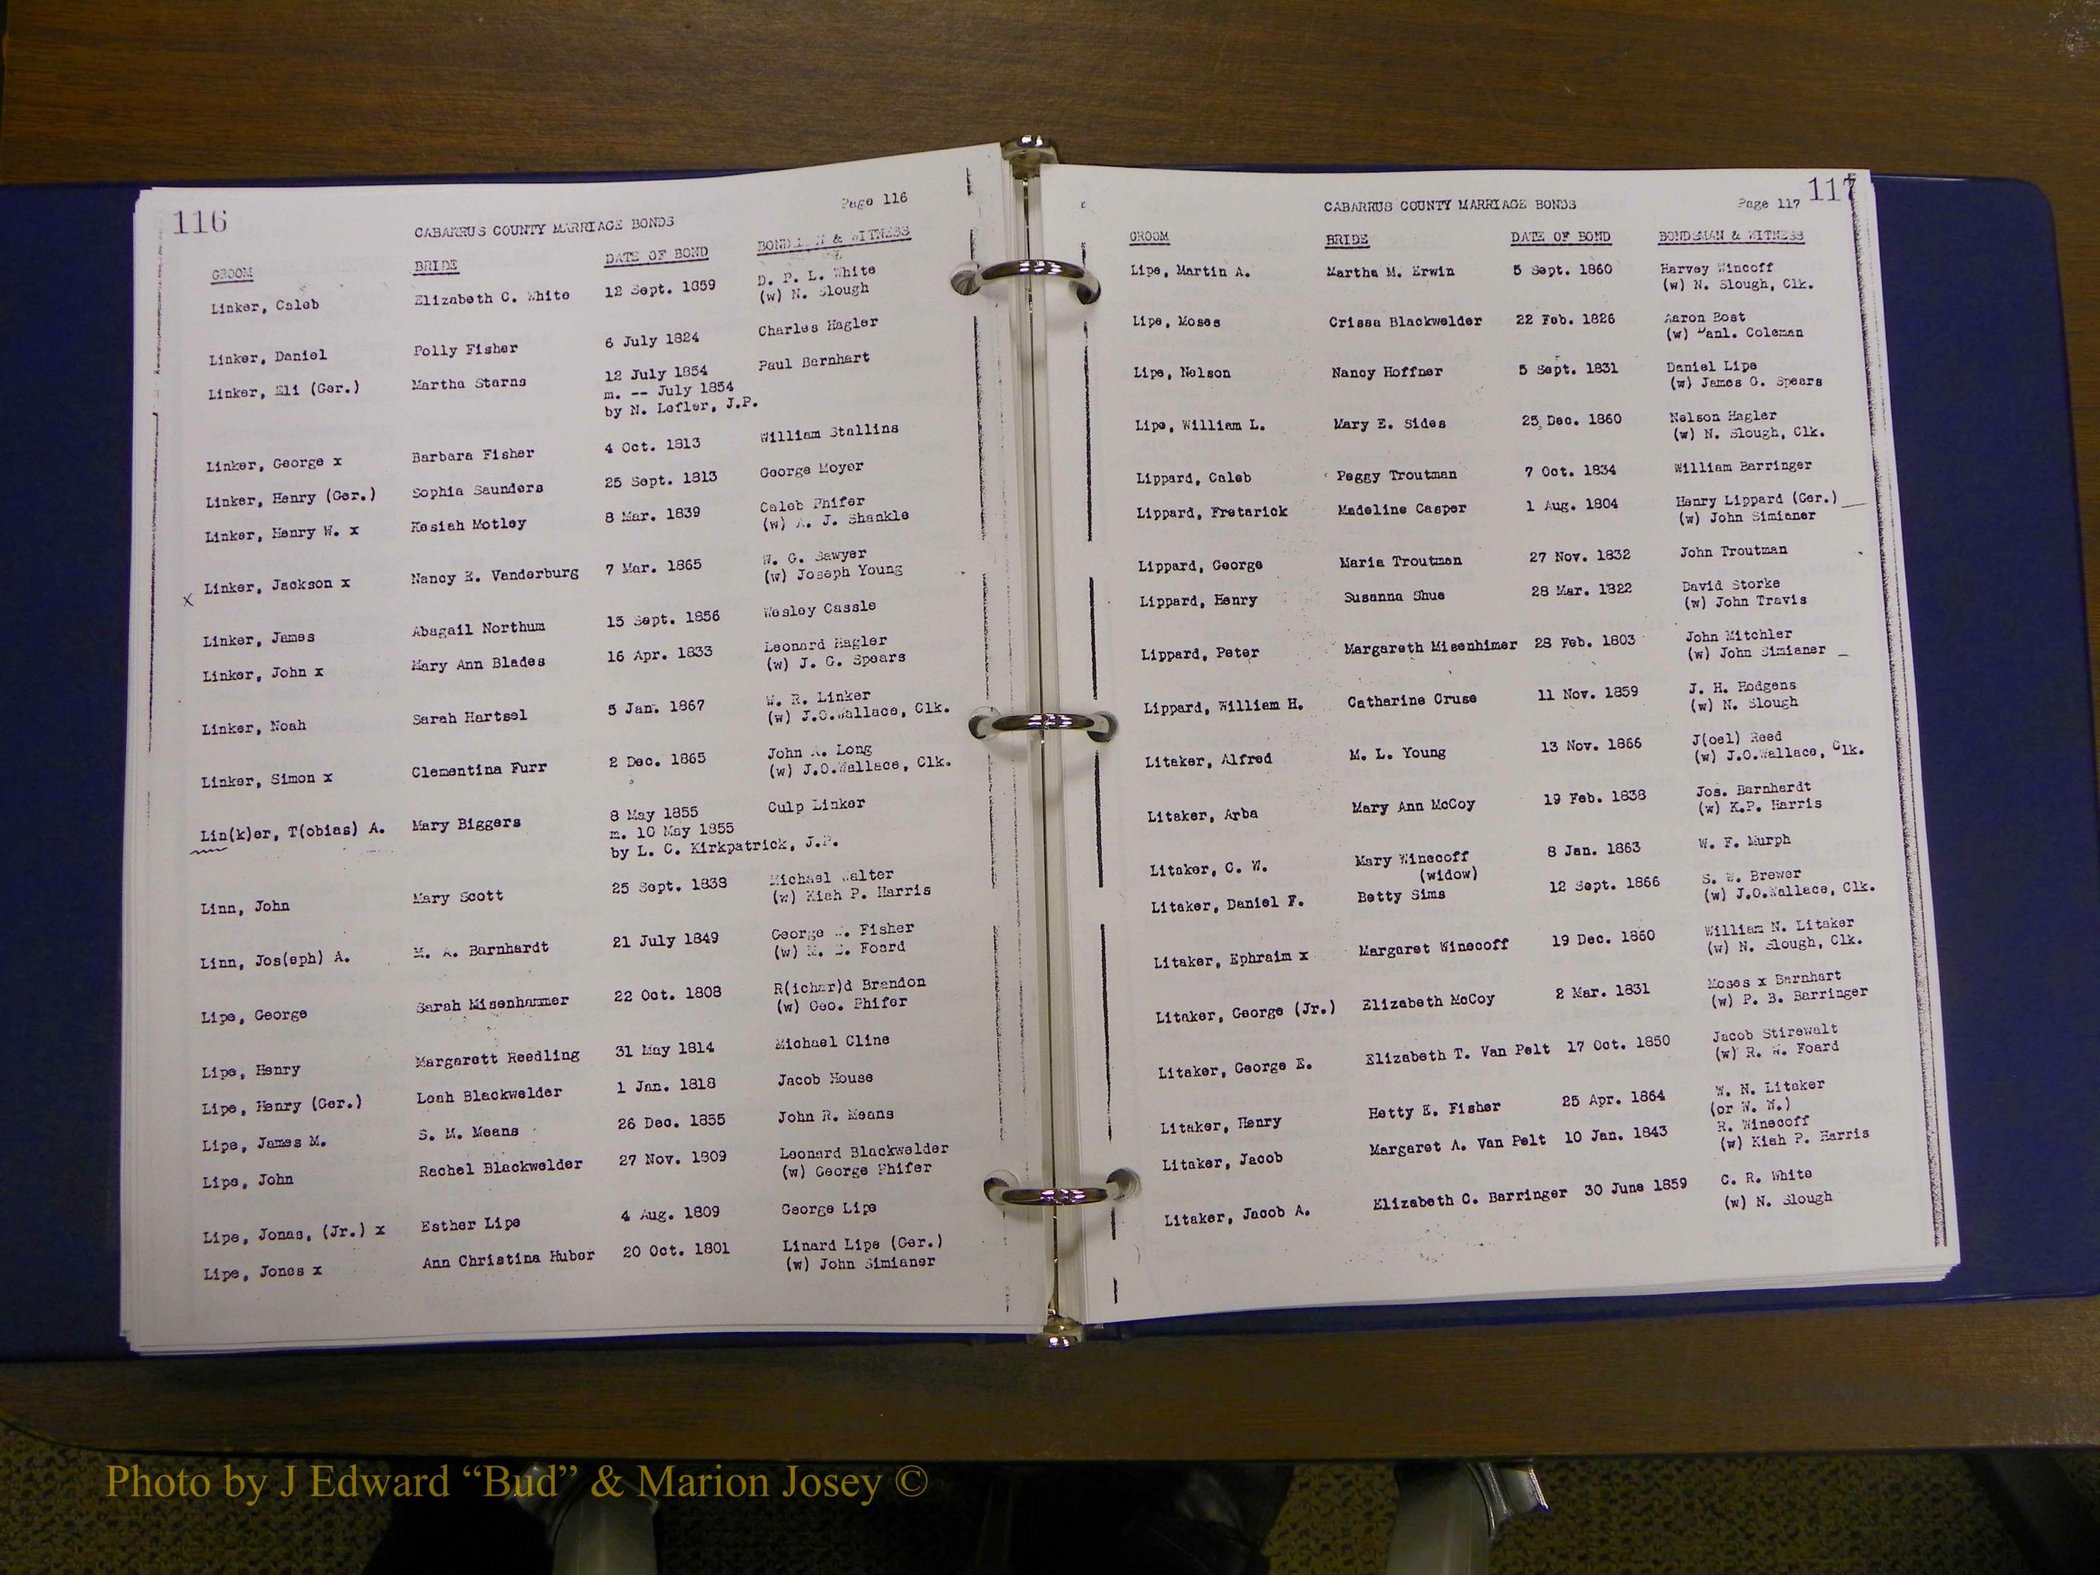 116
Page 116
CABARRUS COUNTY MARRIAGE BONDS
GROOM BRIDE DATE OF BOND BONDSMAN & WITNESS
Linker, Caleb Elizabeth C. White 12 Sept. 1859 D. P. L. White
(w) N. Slough
Linker, Daniel Polly Fisher 6 July 1824 Charles Hagler
Linker, Eli (Ger.) Martha Starns 12 July 1854 Paul Barnhart
m. -- July 1854
by N. Lefler, J.P.
Linker, George x Barbara Fisher 4 Oct. 1813 William Stallins
Linker, Henry (Ger.) Sophia Saunders 25 Sept. 1813 George Moyer
Linker, Henry W. x Kesiah Motley 8 Mar. 1839 Caleb Phifer
(w) A. J. Shankle
Linker, Jackson x Nancy E. Vanderburg 7 Mar. 1865 W. G. Sawyer
(w) Joseph Young
x
Linker, James Abagail Northum 15 Sept. 1856 Wesley Cassle
Linker, John x Mary Ann Blades 16 Apr. 1833 Leonard Hagler
(w) J. G. Spears
Linker, Noah Sarah Hartsel 5 Jan. 1867 W. R. Linker
(w) J.O.Wallace, Clk.
Linker, Simon x Clementina Furr 2 Dec. 1865 John A. Long
(w) J.O.Wallace, Clk.
Lin(k)er, T(obias) A. Mary Biggers 8 May 1855 Culp Linker
m. 10 May 1855
by L. C. Kirkpatrick, J.P.
Linn, John Mary Scott 25 Sept. 1838 Michael Walter
(w) Kiah P. Harris
Linn, Jos(eph) A. M. A. Barnhardt 21 July 1849 George Fisher
(w) Foard
Lipe, George Sarah Misenhammer 22 Oct. 1808 R(ichar)d Brandon
(w) Geo. Phifer
Lipe, Henry Margarett Reedling 31 May 1814 Michael Cline
Lipe, Henry (Ger.) Leah Blackwelder 1 Jan. 1818 Jacob House
Lipe, James M. S. M. Means 26 Dec. 1855 John R. Means
Lipe, John Rachel Blackwelder 27 Nov. 1809 Leonard Blackwelder
(w) George Phifer
Lipe, Jonas, (Jr.) x Esther Lipe 4 Aug. 1809 George Lipe
Lipe, Jones x Ann Christina Huber 20 Oct. 1801 Linard Lipe (Ger.)
(w) John Simianer
117
Page 117
CABARRUS COUNTY MARRIAGE BONDS
GROOM BRIDE DATE OF BOND BONDSMAN & WITNESS
Lipe, Martin A. Martha M. Erwin 5 Sept. 1860 Harvey Wincoff
(w) N. Slough, Clk.
Lipe, Moses Crissa Blackwelder 22 Feb. 1826 Aaron Bost
(w) Danl. Coleman
Lipe, Nelson Nancy Hoffner 5 Sept. 1831 Daniel Lipe
(w) James G. Spears
Lipe, William L. Mary E. Sides 25 Dec. 1860 Nelson Hagler
(w) N. Slough, Clk.
Lippard, Caleb Peggy Troutman 7 Oct. 1834 William Barringer
Lippard, Fretarick Madeline Casper 1 Aug. 1804 Henry Lippard (Ger.)
(w) John Simianer
Lippard, George Maria Troutman 27 Nov. 1832 John Troutman
Lippard, Henry Susanna Shue 28 Mar. 1822 David Storke
(w) John Travis
Lippard, Peter Margareth Misenhimer 28 Feb. 1803 John Mitchler
(w) John Simianer
Lippard, William H. Catharine Cruse 11 Nov. 1859 J. H. Hodgens
(w) N. Slough
Litaker, Alfred M. L. Young 13 Nov. 1866 J(oel) Reed
(w) J.O.Wallace, Clk.
Litaker, Arba Mary Ann McCoy 19 Feb. 1838 Jos. Barnhardt
(w) K.P. Harris
Litaker, C. W. Mary Winecoff 8 Jan. 1863 W. F. Murph
(widow)
Litaker, Daniel F. Betty Sims 12 Sept. 1866 S. W. Brewer
(w) J.O.Wallace, Clk.
Litaker, Ephraim x Margaret Winecoff 19 Dec. 1860 William N. Litaker
(w) N. Slough, Clk.
Litaker, George (Jr.) Elizabeth McCoy 2 Mar. 1831 Moses x Barnhart
(w) P. B. Barringer
Litaker, George E. Elizabeth T. Van Pelt 17 Oct. 1850 Jacob Stirewalt
(w) R. W. Foard
Litaker, Henry Hetty E. Fisher 25 Apr. 1864 W. N. Litaker
(or W. W.)
Litaker, Jacob Margaret A. Van Pelt 10 Jan. 1843 R. Winecoff
(w) Kiah P. Harris
Litaker, Jacob A. Elizabeth C. Barringer 30 June 1859 C. R. White
(w) N. Slough
Photo by J Edward “Bud” & Marion Josey ©